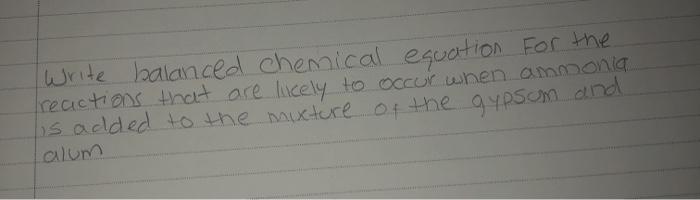 Write balanced chemical equation For the
reactions that are likely to occur when ammonia
is added to the mixture of the gypsum and
alum